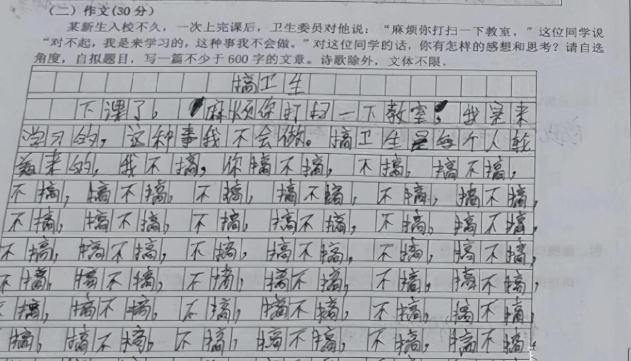 （二）作文(30分)
某新生入校不久，一次上完课后，卫生委员对他说：“麻烦你打扫一下教室，”这位同学说
“对不起，我是来学习的，这种事我不会做。”对这位同学的话，你有怎样的感想和思考？请自选
角度，自拟题目，写一篇不少于600字的文章。诗歌除外，文体不限.
搞卫生
下课了，麻烦你打扫一下教室，我是来
学习的，这种事我不会做。搞卫生是每个人轮
着来的，我不搞，你搞不搞，不搞，搞不搞，
不搞，搞不搞，不搞，搞不搞，不搞，搞不搞，
不搞，搞不搞，不搞，搞不搞，不搞，搞不搞，
不搞，搞不搞，不搞，搞不搞，不搞，搞不搞，
不搞，搞不搞，不搞，搞不搞，不搞，搞不搞，
不搞，搞不搞，不搞，搞不搞，不搞，搞不搞，
搞，搞不搞，不搞，搞不搞，不搞，搞不搞。